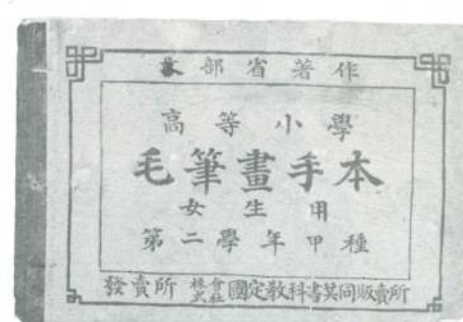 文部省著作
高等小學
毛筆畫手本
女生用
第二學年甲種
發賣所 株式會社 國定教科書共同販賣所